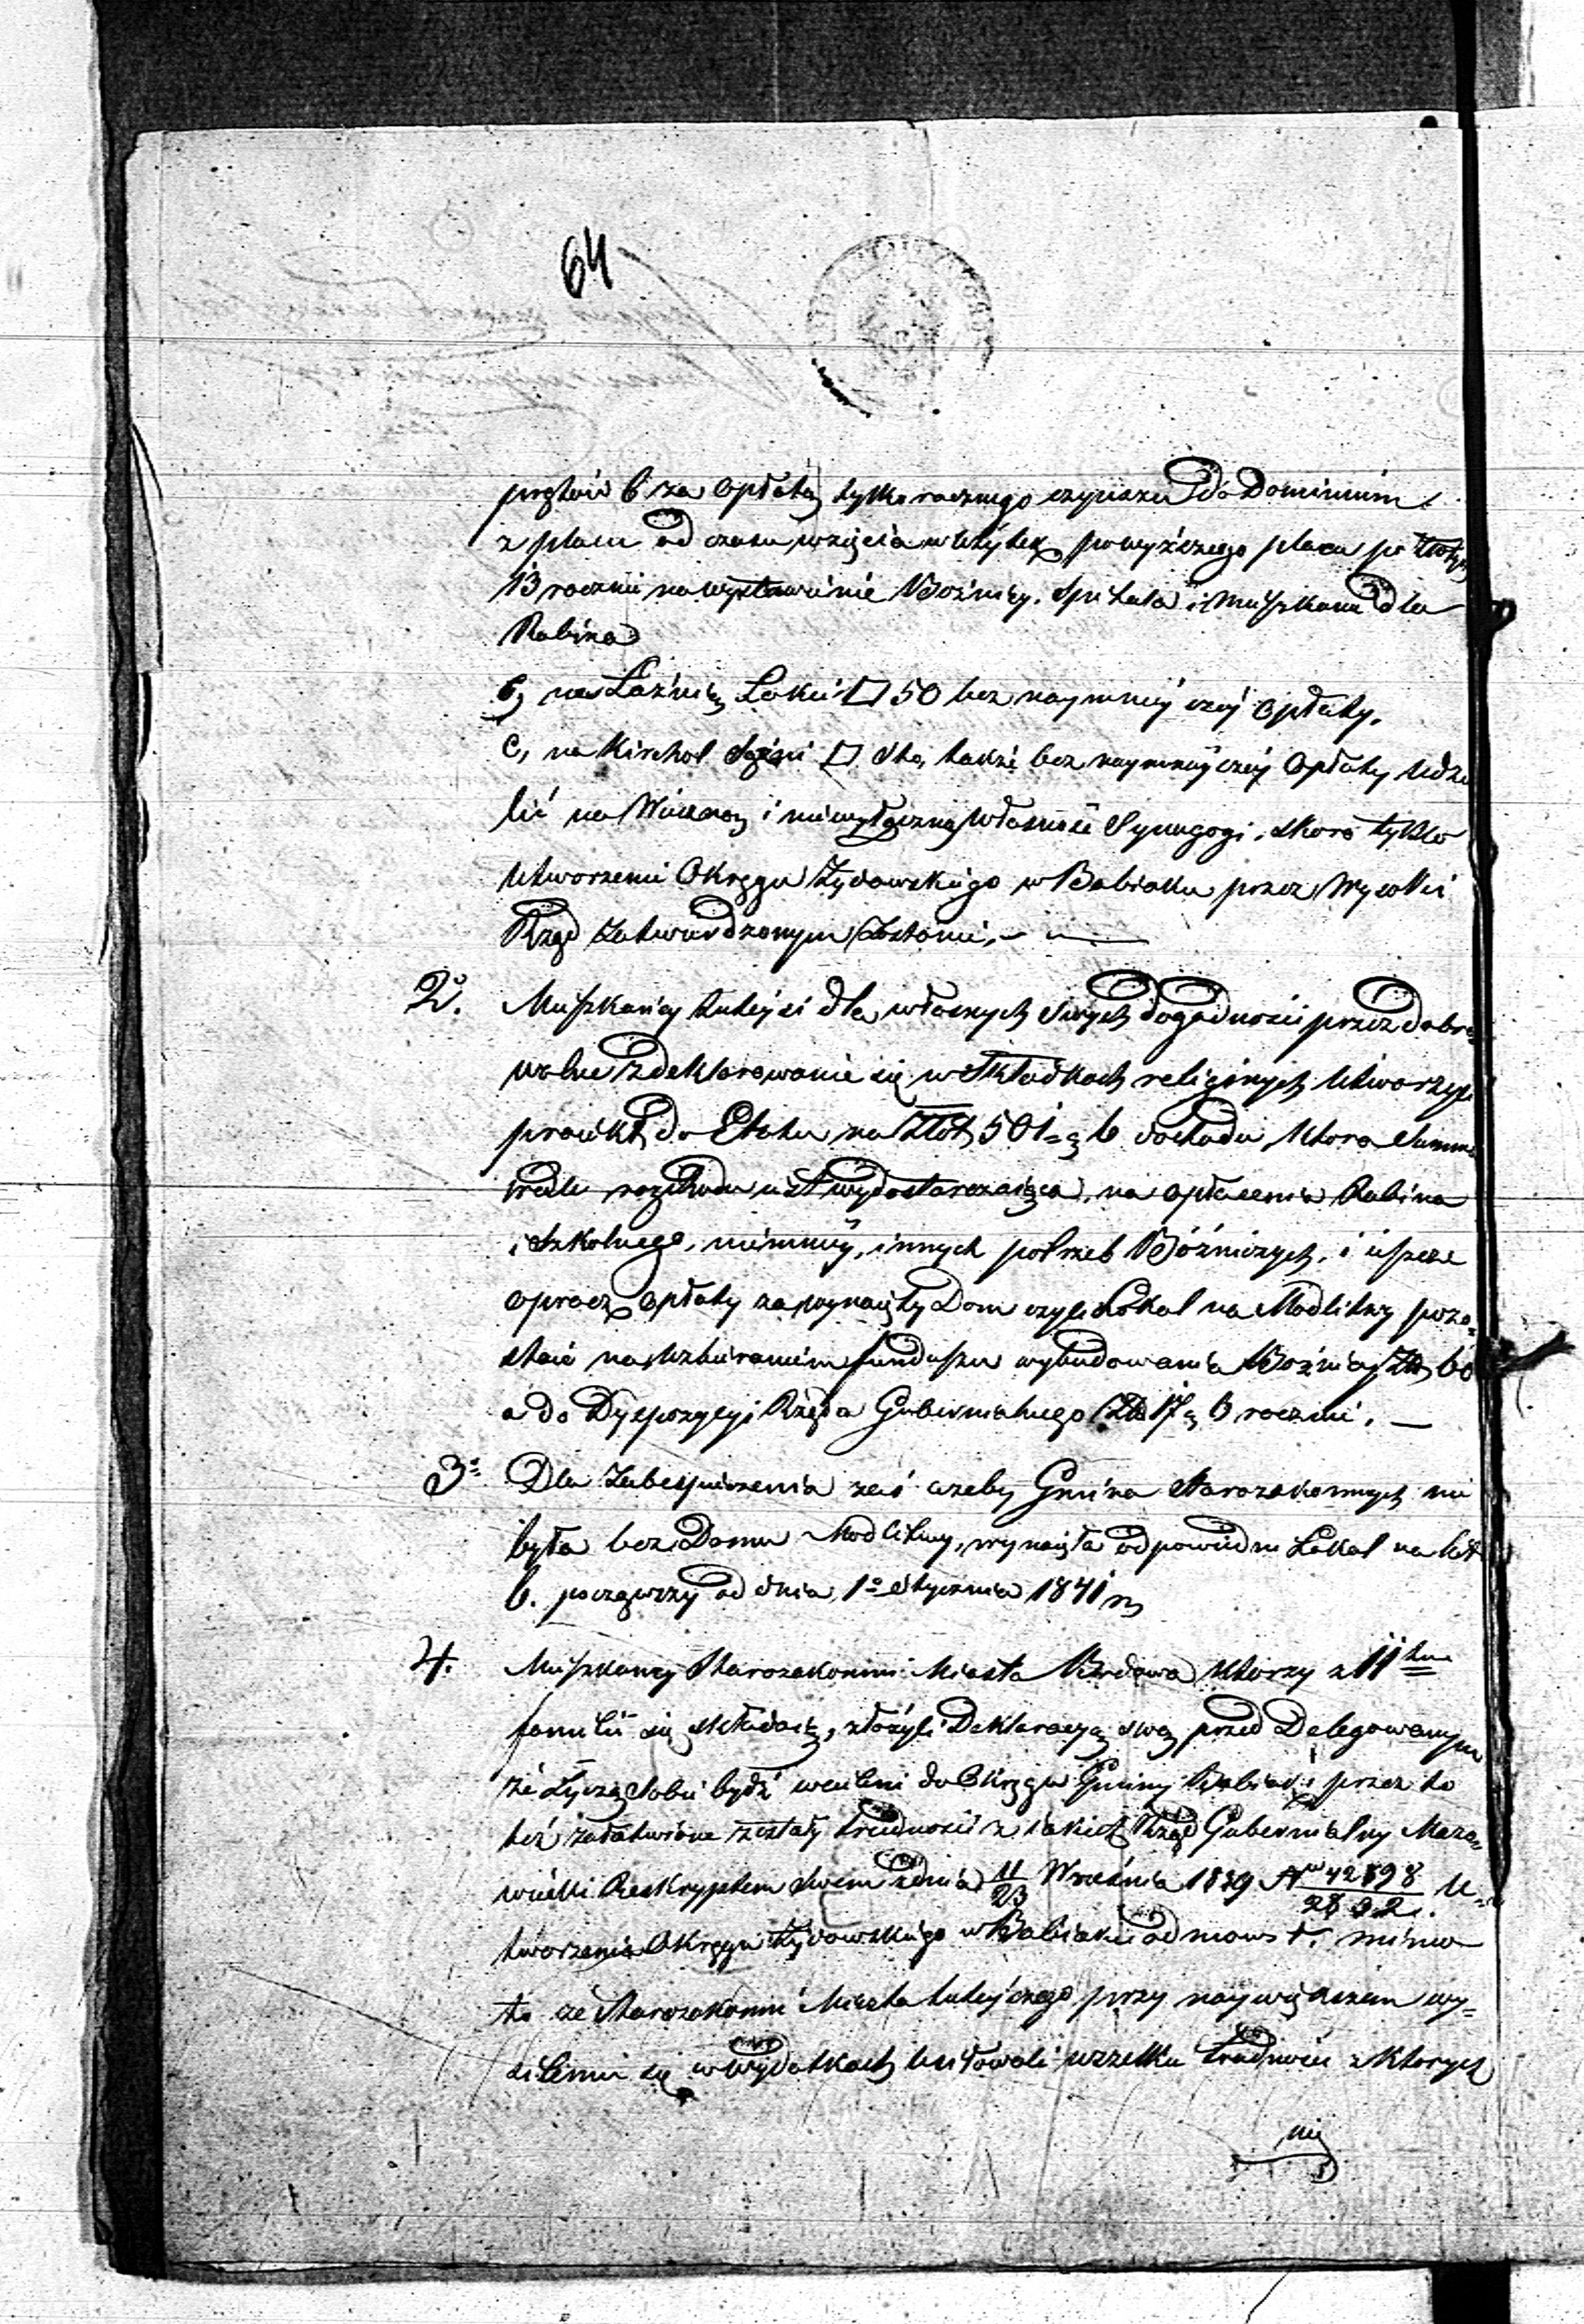 64
prętów 6 za opłatą tylko rocznego czynszu do Dominium
z placu od czasu wzięcia w użytek powyższego placu po Złotych
13 rocznie na wystawienie Bożnicy, Spitala i Mieszkania dla
Rabina
b, na Łaźnię Łokci □ 50 bez naymnieyszey opłaty.
c, na Kirchol Sążni □ sto, także bez naymnieyszey opłaty udzie
lić na Wieczną i niewyłączną własność Synagogi, skoro tylko
utworzenie Okręgu Żydowskiego w Babiaku przez Wysoki
Rząd zatwierdzonym zostanie. —
2º. Mieszkańcy tuteysi dla własnych swych dogodności przez dobro
wolne zdeklarowanie się w składkach religinych utworzyli
proiekt do Etatu na Złot 501 g 6 dochodu, ktora Summa
wedle rozchodu iest wydostarczaiąca, na opłacenia Rabina
i Szkolnego, niemniey, innych potrzeb Bóźniczych, i ieszcze
oprocz opłaty za wynaięty Dom czyli Lokal na Modlitwy pozo=
staie na uzbieranie funduszu wybudowania Bożnicy Zł 60
a do Dyspozycyi Rządu Gubernialnego Zł 17 g 6 rocznie. —
3º Dla Zabespieczenia zaś azeby Gmina Starozakonnych nie
była bez Domu Modlitwy, wynaięła odpowiedni Lokal na lat
6. począwszy od dnia 1º Stycznia 1841 r
4. Mieszkancy Starozakonni Miasta Brdowa ktorzy z 11stu
familii się składaią, złożyli Deklaracyą swą przed Delegowanym
że życzą sobie bydź wcieleni do Okręgu Gminy Babiak i przez to
też załatwione zostały trudności z iakich Rząd Gubernialny Mazo=
wiecki Reskryptem swem z dnia 11/23 Września 1839 Nº 42898/2832. U=
tworzenia Okręgu Żydowskiego w Babiaku odmowił. mimo
to ze Starozakonni Miasta tuteyszego przy naywiększem wy=
sileniu się w wydatkach usiłowali wszelkie trudności z ktorych
nie